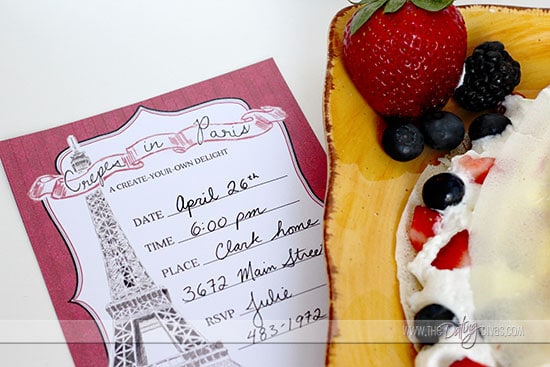 Crepes in Paris
A CREATE-YOUR-OWN DELIGHT
DATE April 26th
TIME 6:00 pm
PLACE Clark home
3672 Main Street
RSVP Julie
483-1972
WWW.THEDatingDIVAS.COM